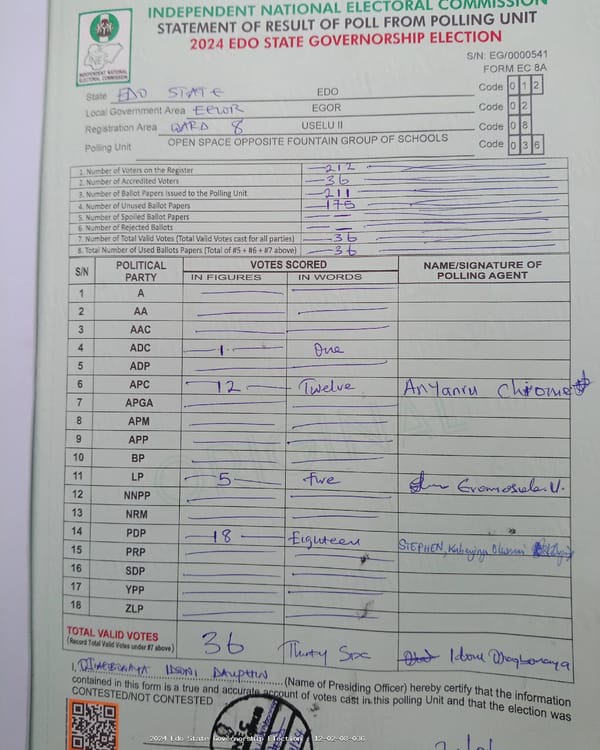 INDEPENDENT NATIONAL ELECTORAL COMMISSION
STATEMENT OF RESULT OF POLL FROM POLLING UNIT
2024 EDO STATE GOVERNORSHIP ELECTION
INDEPENDENT NATIONAL
ELECTORAL COMMISSION
S/N: EG/0000541
FORM EC 8A
State EDO STATE EDO Code 0 1 2
Local Government Area EGOR Code 0 2
Registration Area WARD 8 USELU II Code 0 8
Polling Unit OPEN SPACE OPPOSITE FOUNTAIN GROUP OF SCHOOLS Code 0 3 6
1. Number of Voters on the Register 212
2. Number of Accredited Voters 36
3. Number of Ballot Papers Issued to the Polling Unit 211
4. Number of Unused Ballot Papers 175
5. Number of Spoiled Ballot Papers —
6. Number of Rejected Ballots —
7. Number of Total Valid Votes (Total Valid Votes cast for all parties) 36
8. Total Number of Used Ballots Papers (Total of #5 + #6 + #7 above) 36
S/N POLITICAL PARTY VOTES SCORED NAME/SIGNATURE OF POLLING AGENT
IN FIGURES IN WORDS
1 A
2 AA
3 AAC
4 ADC 1 One
5 ADP
6 APC 12 Twelve
7 APGA
8 APM
9 APP
10 BP
11 LP 5 Five
12 NNPP
13 NRM
14 PDP 18 Eighteen STEPHEN,
15 PRP
16 SDP
17 YPP
18 ZLP
TOTAL VALID VOTES 36 Thirty Six
(Record Total Valid Votes under #7 above)
I, (Name of Presiding Officer) hereby certify that the information
contained in this form is a true and accurate account of votes cast in this polling Unit and that the election was
CONTESTED/NOT CONTESTED
ORIGINAL
2024 Edo State Governorship Election - 12-02-08-036